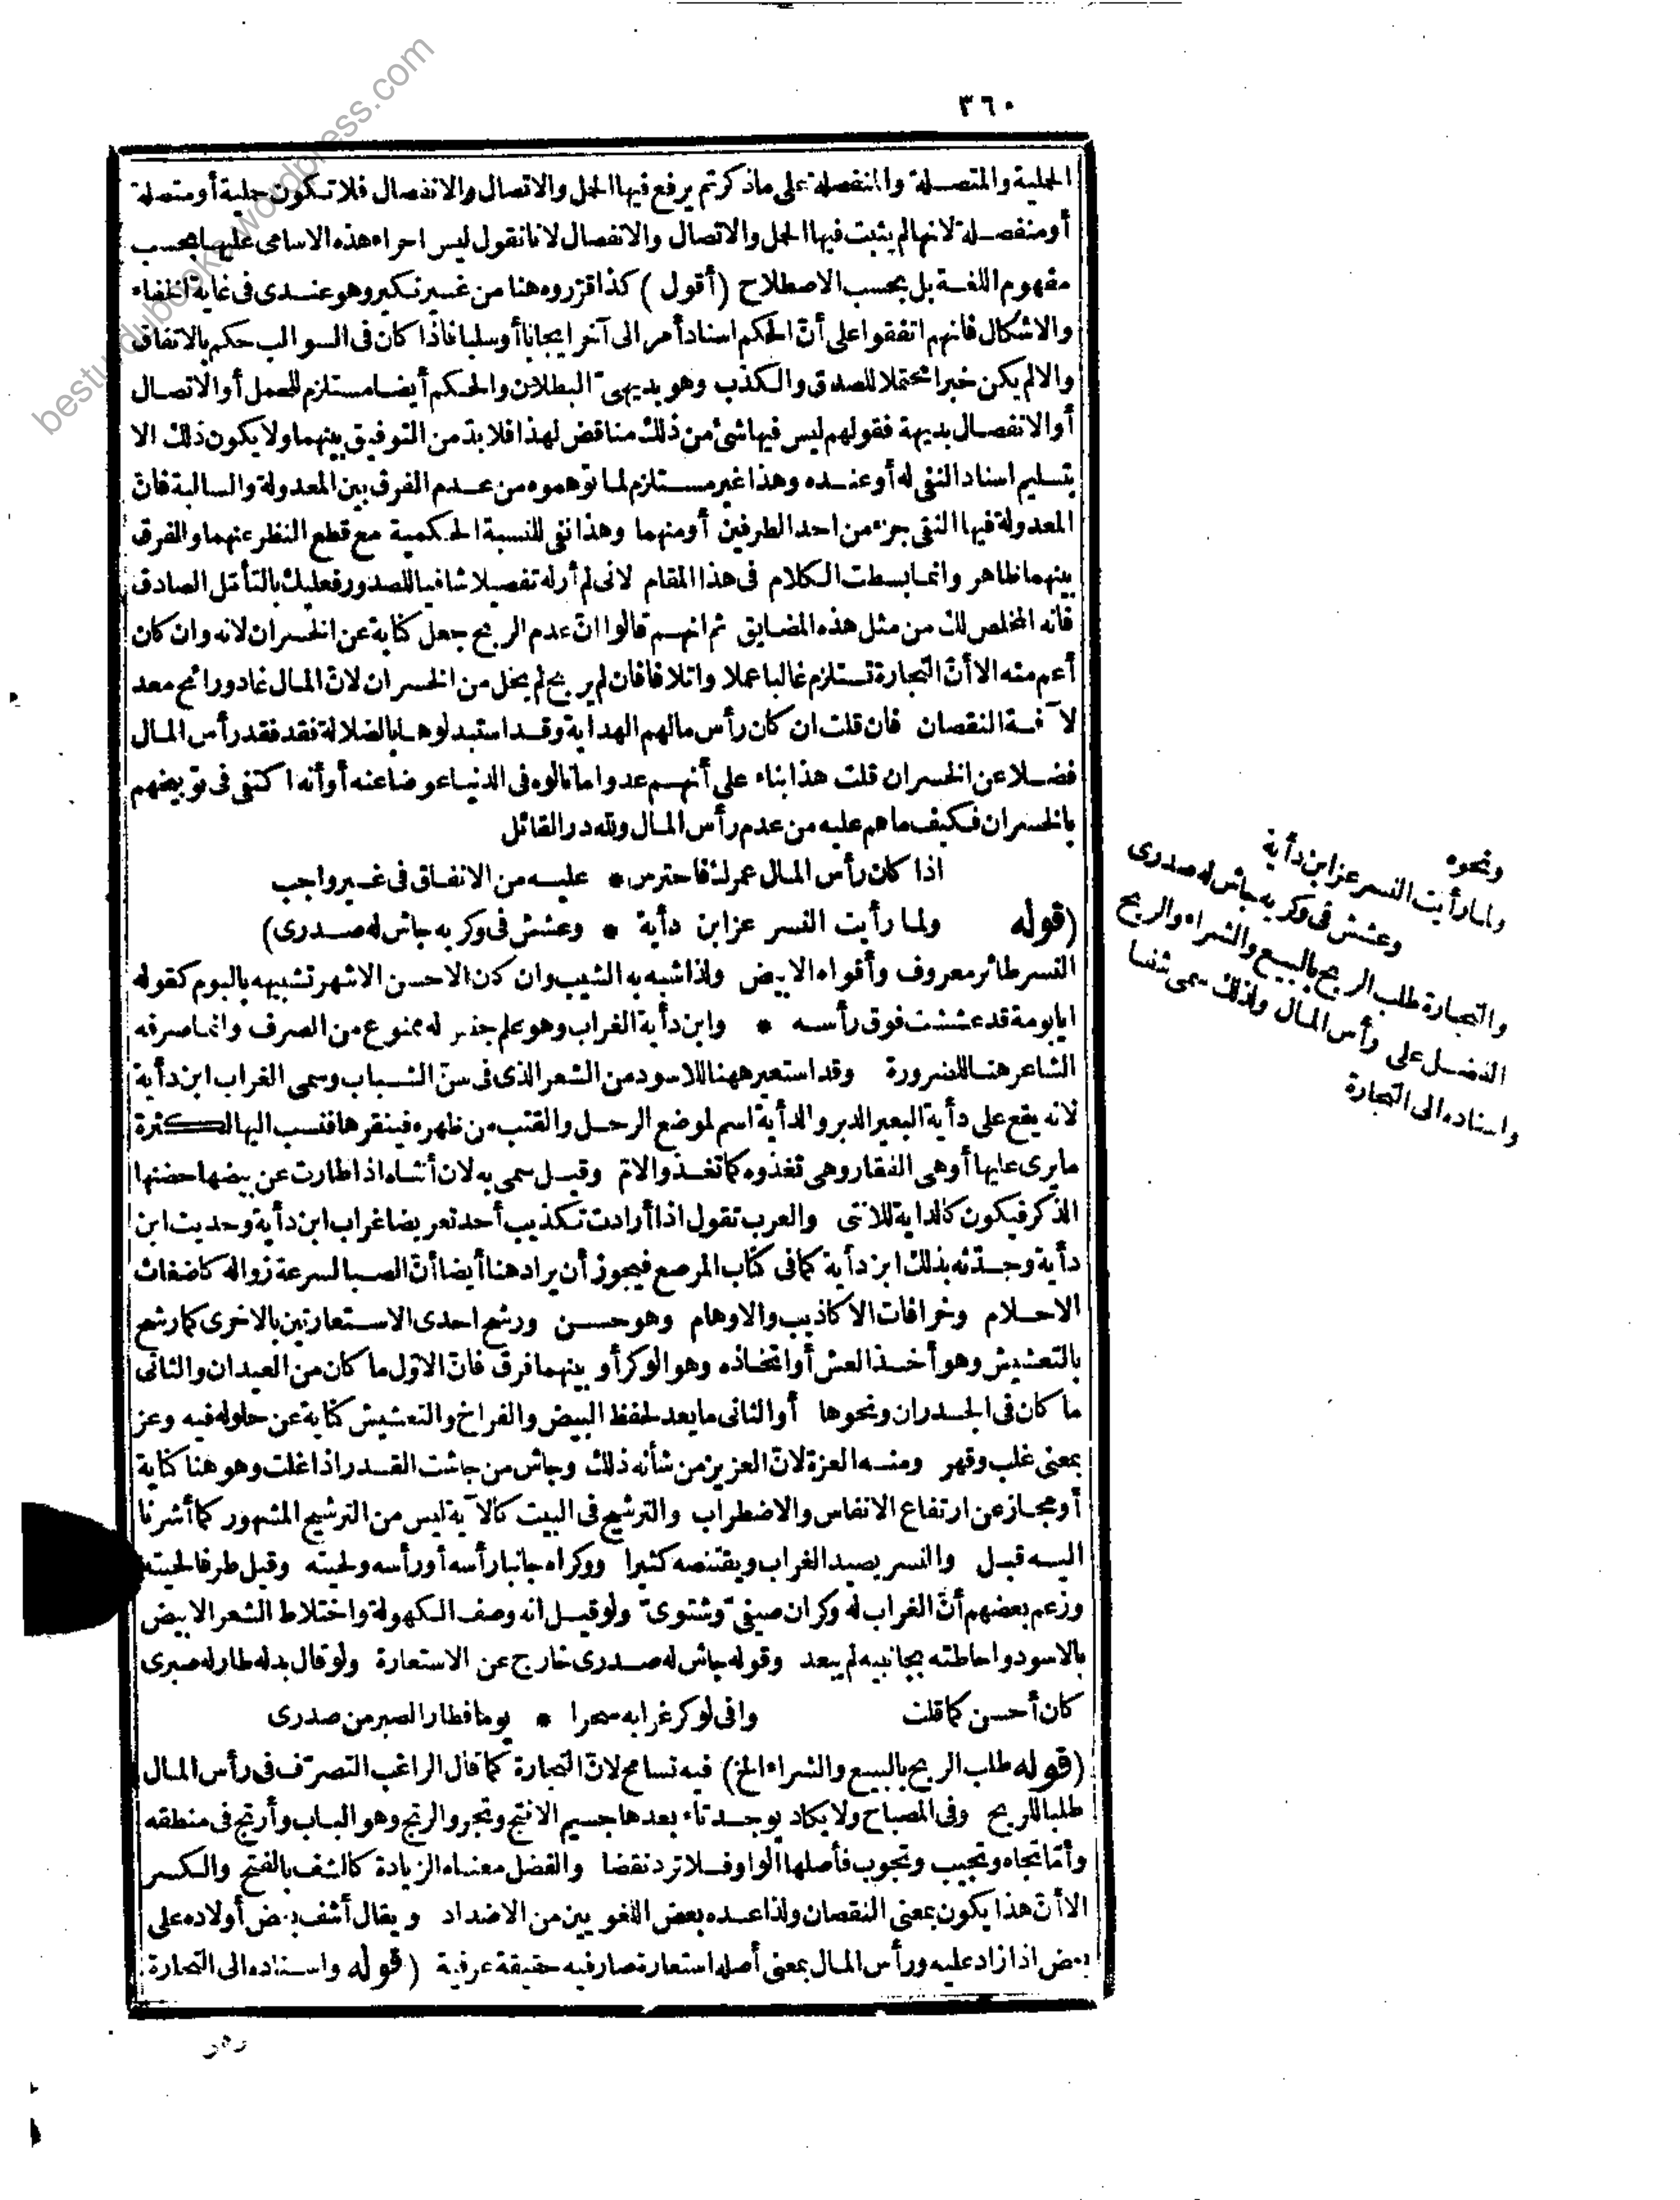 ٣٦٠
الحملية والمتصلة والمنفصلة على ما ذكرتم يرفع فيها الحمل والاتصال والانفصال فلا تكون حملية أو متصلة
أو منفصلة لانها لم يثبت فيها الحمل والاتصال والانفصال لانا نقول ليس اجراء هذه الاسامى عليها بحسب
مفهوم اللغة بل بحسب الاصطلاح (أقول) كذا قرّروه هنا من غير نكير وهو عندى فى غاية الخفاء
والاشكال فانهم اتفقوا على أنّ الحكم اسناد أمر الى آخر ايجابا أو سلبا فاذا كان فى السوالب حكم بالاتفاق
والالم يكن خبرا محتملا للصدق والكذب وهو بديهىّ البطلان والحكم أيضا مستلزم للحمل أو الاتصال
أو الانفصال بديهة فقولهم ليس فيها شئ من ذلك مناقض لهذا فلا بدّ من التوفيق بينهما ولا يكون ذلك الا
بتسليم اسناد النفى له أو عنده وهذا غير مستلزم لما توهموه من عدم الفرق بين المعدولة والسالبة فانّ
المعدولة فيها النفى جزء من احد الطرفين أو منهما وهذا نفى للنسبة الحكمية مع قطع النظر عنهما والفرق
بينهما ظاهر وانما بسطت الكلام فى هذا المقام لانى لم أر له تفصيلا شافيا للصدور فعليك بالتأمّل الصادق
فانه المخلص لك من مثل هذه المضايق ثم انهم قالوا انّ عدم الربح جعل كناية عن الخسران لانه وان كان
أعم منه الا أنّ التجارة تستلزم غالبا عملا واتلافا فان لم يربح لم يخل من الخسران لانّ المال غاد ورائح معد
لآفة النقصان فان قلت ان كان رأس مالهم الهداية وقد استبدلوها بالضلالة فقد فقد رأس المال
فضلا عن الخسران قلت هذا بناء على أنهم عدوا ما نالوه فى الدنيا عوضا عنه أو أنه اكتفى فى توبيخهم
بالخسران فكيف ما هم عليه من عدم رأس المال ولله در القائل
اذا كان رأس المال عمرك فاحترس * عليه من الانفاق فى غير واجب
(قوله ولما رأيت النسر عز ابن دأية * وعشش فى وكريه جاش له صدرى)
النسر طائر معروف وأقواه الابيض ولذا شبه به الشيب وان كان الاحسن الاشهر تشبيهه بالبوم كقوله
ايا بومة قد عششت فوق رأسه * وابن دأية الغراب وهو علم جنس له ممنوع من الصرف وانما صرفه
الشاعر هنا للضرورة وقد استعير ههنا للاسود من الشعر الذى فى سنّ الشباب وسمى الغراب ابن دأية
لانه يقع على دأية البعير الدبر والدأية اسم لموضع الرحل والقتب من ظهره فينقرها فنسب اليها لكثرة
ما يرى عليها أو هى الفقار وهى تغذوه كما تغذو الامّ وقيل سمى به لان أنثاه اذا طارت عن بيضها حضنها
الذكر فيكون كالداية للانثى والعرب تقول اذا أرادت تكذيب أحد تعريضا غراب ابن دأية وحديث ابن
دأية وحدّثه بذلك ابن دأية كما فى كتاب المرصع فيجوز أن يراد هنا أيضا أنّ الصبا لسرعة زواله كاضغاث
الاحلام وخرافات الاكاذيب والاوهام وهو حسن ورشح احدى الاستعارتين بالاخرى كما رشح
بالتعشيش وهو أخذ العش أو اتخاذه وهو الوكر أو بينهما فرق فانّ الاوّل ما كان من العيدان والثانى
ما كان فى الجدران ونحوها أو الثانى ما يعد لحفظ البيض والفراخ والتعشيش كناية عن حلوله فيه وعز
بمعنى غلب وقهر ومنه العزة لانّ العزيز من شأنه ذلك وجاش من جاشت القدر اذا غلت وهو هنا كناية
أو مجاز عن ارتفاع الانفاس والاضطراب والترشيح فى البيت كالآية ليس من الترشيح المشهور كما أشرنا
اليه قبل والنسر يصيد الغراب ويقتنصه كثيرا ووكراه جانبا رأسه أو رأسه ولحيته وقيل طرفا لحيته
وزعم بعضهم أنّ الغراب له وكران صيفىّ وشتوىّ ولو قيل انه وصف الكهولة واختلاط الشعر الابيض
بالاسود واحاطته بجانبيه لم يبعد وقوله جاش له صدرى خارج عن الاستعارة ولو قال بدله طار له صبرى
كان أحسن كما قلت وافى لوكر غرابه سحرا * يوما فطار الصبر من صدرى
(قوله طلب الربح بالبيع والشراء الخ) فيه تسامح لانّ التجارة كما قال الراغب التصرّف فى رأس المال
طلبا للربح وفى المصباح ولا يكاد يوجد تاء بعدها جيم الا نتج وتجر والرتج وهو الباب وأرتج فى منطقه
وأمّا تجاه وتجيب وتجوب فأصلها الواو فلا ترد نقضا والفضل معناه الزيادة كالشف بالفتح والكسر
الا أنّ هذا يكون بمعنى النقصان ولذا عده بعض اللغويين من الاضداد ويقال أشف بعض أولاده على
بعض اذا زاد عليه ورأس المال بمعنى أصله استعارة صار فيه حقيقة عرفية (قوله واسناده الى التجارة
ونحوه
ولما رأيت النسر عز ابن دأية
وعشش فى وكريه جاش له صدرى
والتجارة طلب الربح بالبيع والشراء والربح
الفضل على رأس المال ولذلك سمى شفا
واسناده الى التجارة
besturdubooks.wordpress.com